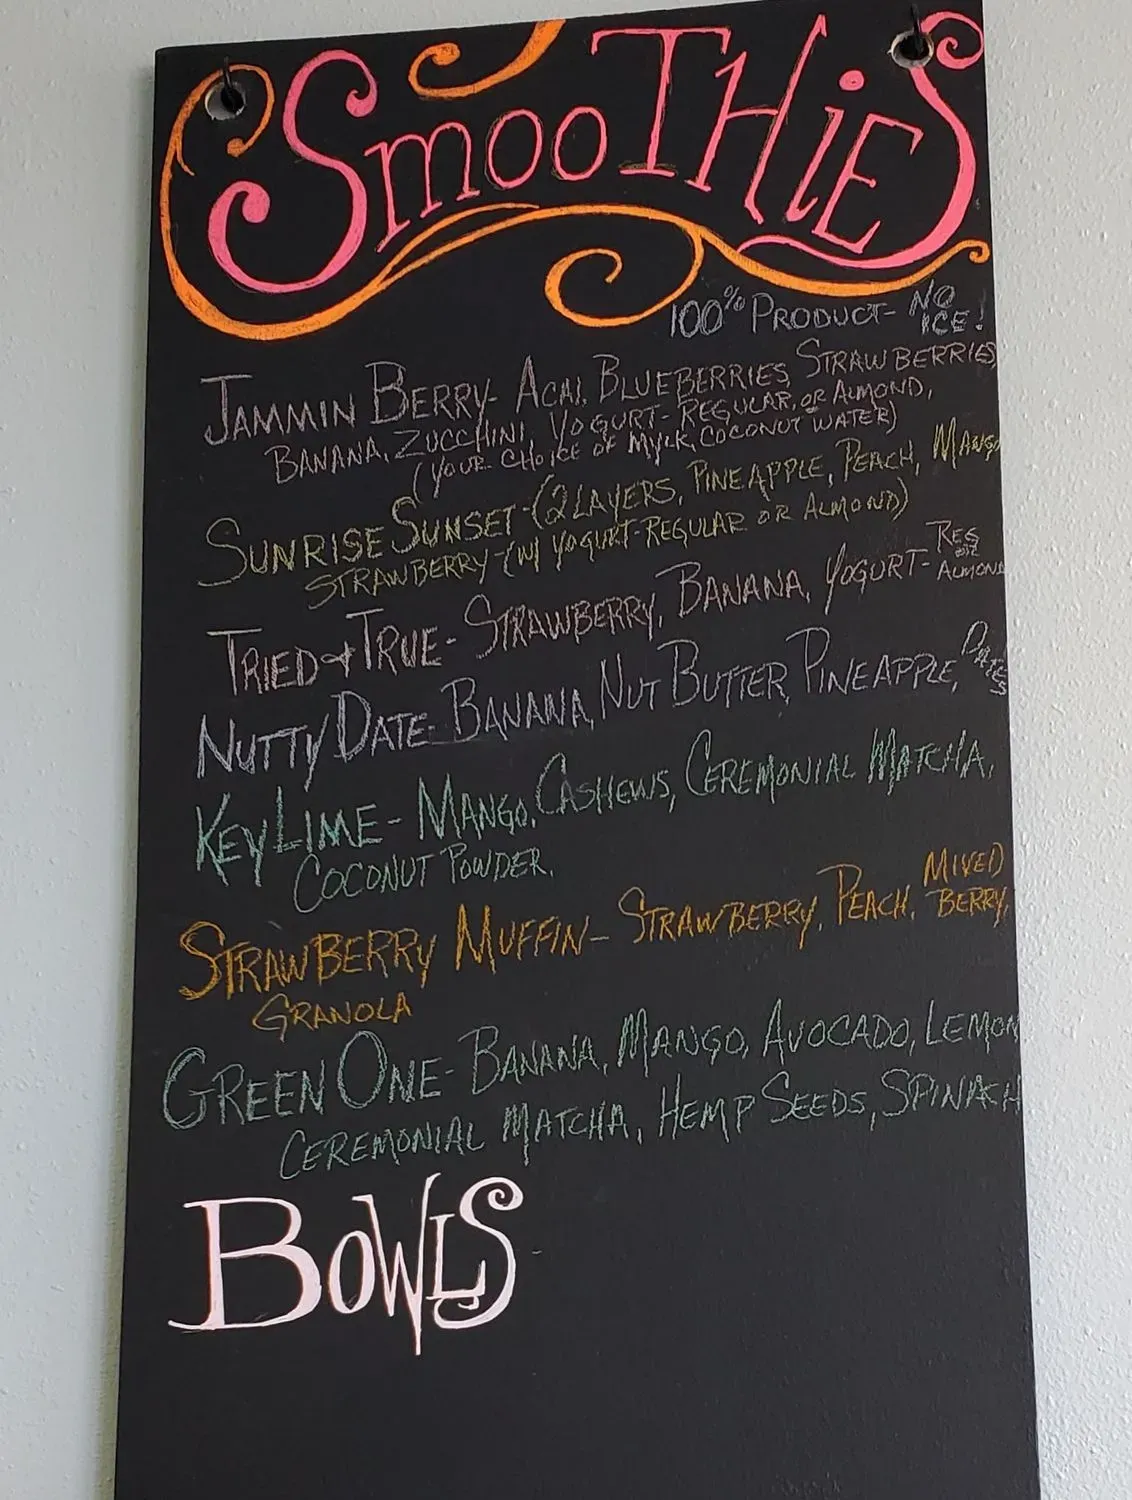 SmooTHiES
100% PRODUCT- NO ICE!
JAMMIN BERRY- ACAI, BLUEBERRIES, STRAWBERRIES
BANANA, ZUCCHINI, YOGURT- REGULAR, OR ALMOND,
(YOUR CHOICE OF MYLK, COCONUT WATER)
SUNRISE SUNSET-(2 LAYERS, PINEAPPLE, PEACH, MANGO
STRAWBERRY-(W/ YOGURT-REGULAR OR ALMOND)
TRIED & TRUE- STRAWBERRY, BANANA, YOGURT- REG OR ALMOND
NUTTY DATE- BANANA, NUT BUTTER, PINEAPPLE, DATES
KEY LIME- MANGO, CASHEWS, CEREMONIAL MATCHA,
COCONUT POWDER.
STRAWBERRY MUFFIN- STRAWBERRY, PEACH, MIXED BERRY,
GRANOLA
GREEN ONE- BANANA, MANGO, AVOCADO, LEMON
CEREMONIAL MATCHA, HEMP SEEDS, SPINACH
BOWLS